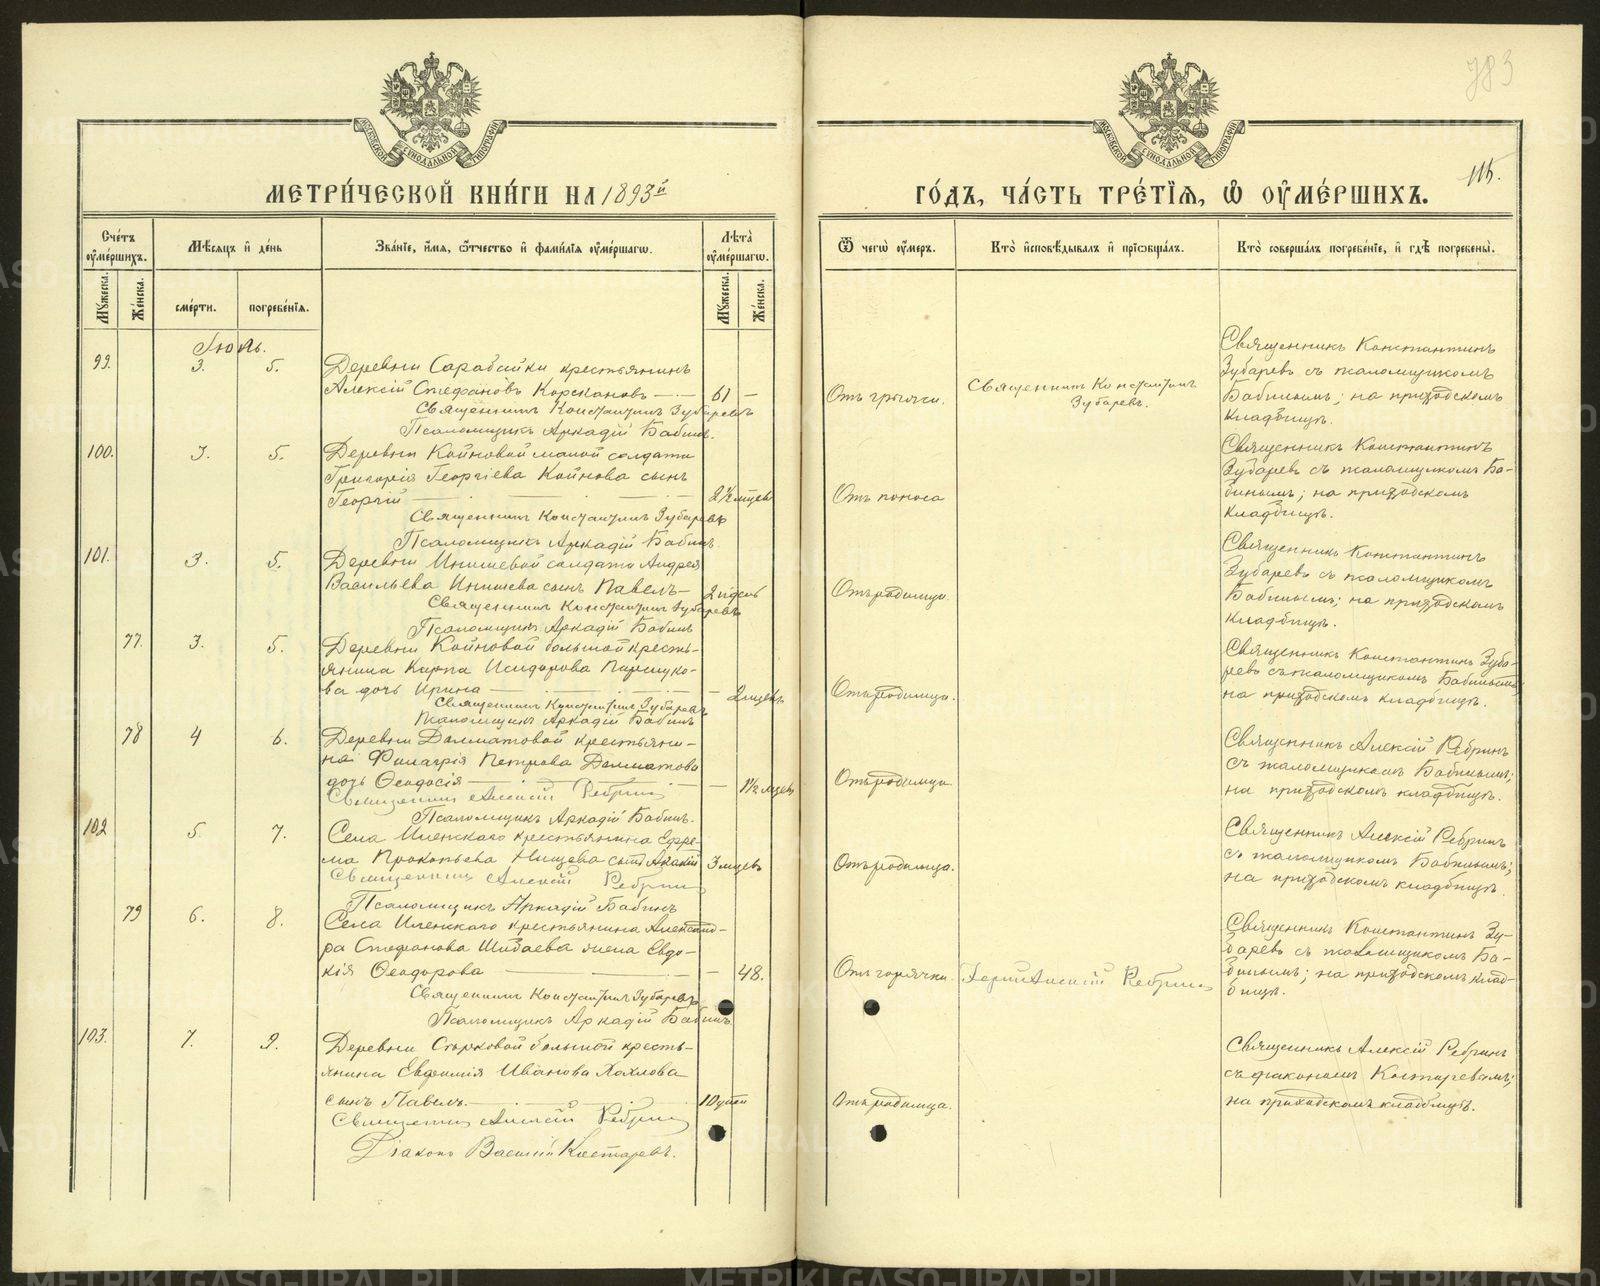 МЕТРИ́ЧЕСКОЙ КНИ́ГИ НА 1893й
ГО́ДЪ, ЧА́СТЬ ТРЕ́ТЇѦ, Ѡ҆ ОУ҆МЕ́РШИХЪ.
783
115.
Сче́тъ оу҆ме́ршихъ.
Мѣ́сѧцъ и҆ де́нь
Зва́нїе, и҆́мѧ, ѻ҆́тчество и҆ фами́лїѧ оу҆ме́ршагѡ.
Лѣ́та оу҆ме́ршагѡ.
Ѿ чегѡ̀ оу҆́меръ.
Кто̀ и҆сповѣ́дывалъ и҆ прїѡбща́лъ.
Кто̀ соверша́лъ погребе́нїе, и҆ гдѣ̀ погребены̀.
Мꙋ́жеска.
Же́нска.
сме́рти.
погребе́нїѧ.
Мꙋ́жеска.
Же́нска.
Іюль.
99. 3. 5.
Деревни Сарабайки крестьянинъ
Алексій Стефановъ Корскановъ — 61 —
Священникъ Константинъ Зубаревъ
Псаломщикъ Аркадій Бабинъ.
Отъ грыжи.
Священникъ Константинъ
Зубаревъ.
Священникъ Константинъ
Зубаревъ съ псаломщикомъ
Бабинымъ; на приходскомъ
кладбищѣ.
100. 3. 5.
Деревни Койновой малой солдата
Григорія Георгіева Койнова сынъ
Георгій — 2½ мцевъ
Священникъ Константинъ Зубаревъ
Псаломщикъ Аркадій Бабинъ.
Отъ поноса
Священникъ Константинъ
Зубаревъ съ псаломщикомъ Ба-
бинымъ; на приходскомъ
кладбищѣ.
101. 3. 5.
Деревни Инишевой солдата Андрея
Васильева Инишева сынъ Павелъ —
Священникъ Константинъ Зубаревъ
Псаломщикъ Аркадій Бабинъ
Отъ родимца.
Священникъ Константинъ
Зубаревъ съ псаломщикомъ
Бабинымъ; на приходскомъ
кладбищѣ.
77. 3. 5.
Деревни Койновой большой кресть-
янина Карпа Исидорова Паршуко-
ва дочь Ирина — 2 мцевъ
Священникъ Константинъ Зубаревъ
Псаломщикъ Аркадій Бабинъ
Отъ родимца.
Священникъ Константинъ Зуба-
ревъ съ псаломщикомъ Бабинымъ;
на приходскомъ кладбищѣ.
78 4 6.
Деревни Долматовой крестьяни-
на Филагрія Петрова Долматова
дочь Ѳеодосія — 1½ мцевъ
Священникъ Алексій Ребринъ
Псаломщикъ Аркадій Бабинъ.
Отъ родимца
Священникъ Алексій Ребринъ
съ псаломщикомъ Бабинымъ;
на приходскомъ кладбищѣ.
102 5. 7.
Села Иленскаго крестьянина Ефре-
ма Прокопьева Нищева сынъ Акакій 3 мцевъ
Священникъ Алексій Ребринъ
Псаломщикъ Аркадій Бабинъ
Отъ родимца.
Священникъ Алексій Ребринъ
съ псаломщикомъ Бабинымъ;
на приходскомъ кладбищѣ.
79 6. 8.
Села Иленскаго крестьянина Александ-
ра Стефанова Шибаева жена Евдо-
кія Ѳеодорова — 48.
Священникъ Константинъ Зубаревъ
Псаломщикъ Аркадій Бабинъ.
Отъ горячки.
Іерей Алексій Ребринъ
Священникъ Константинъ Зу-
баревъ съ псаломщикомъ Ба-
бинымъ; на приходскомъ клад-
бищѣ.
103. 7. 9.
Деревни Сторковой большой кресть-
янина Евфимія Иванова Хохлова
сынъ Павелъ. — 10 дней
Священникъ Алексій Ребринъ
Діаконъ Василій Костаревъ.
Отъ родимца.
Священникъ Алексій Ребринъ
съ діакономъ Костаревымъ;
на приходскомъ кладбищѣ.